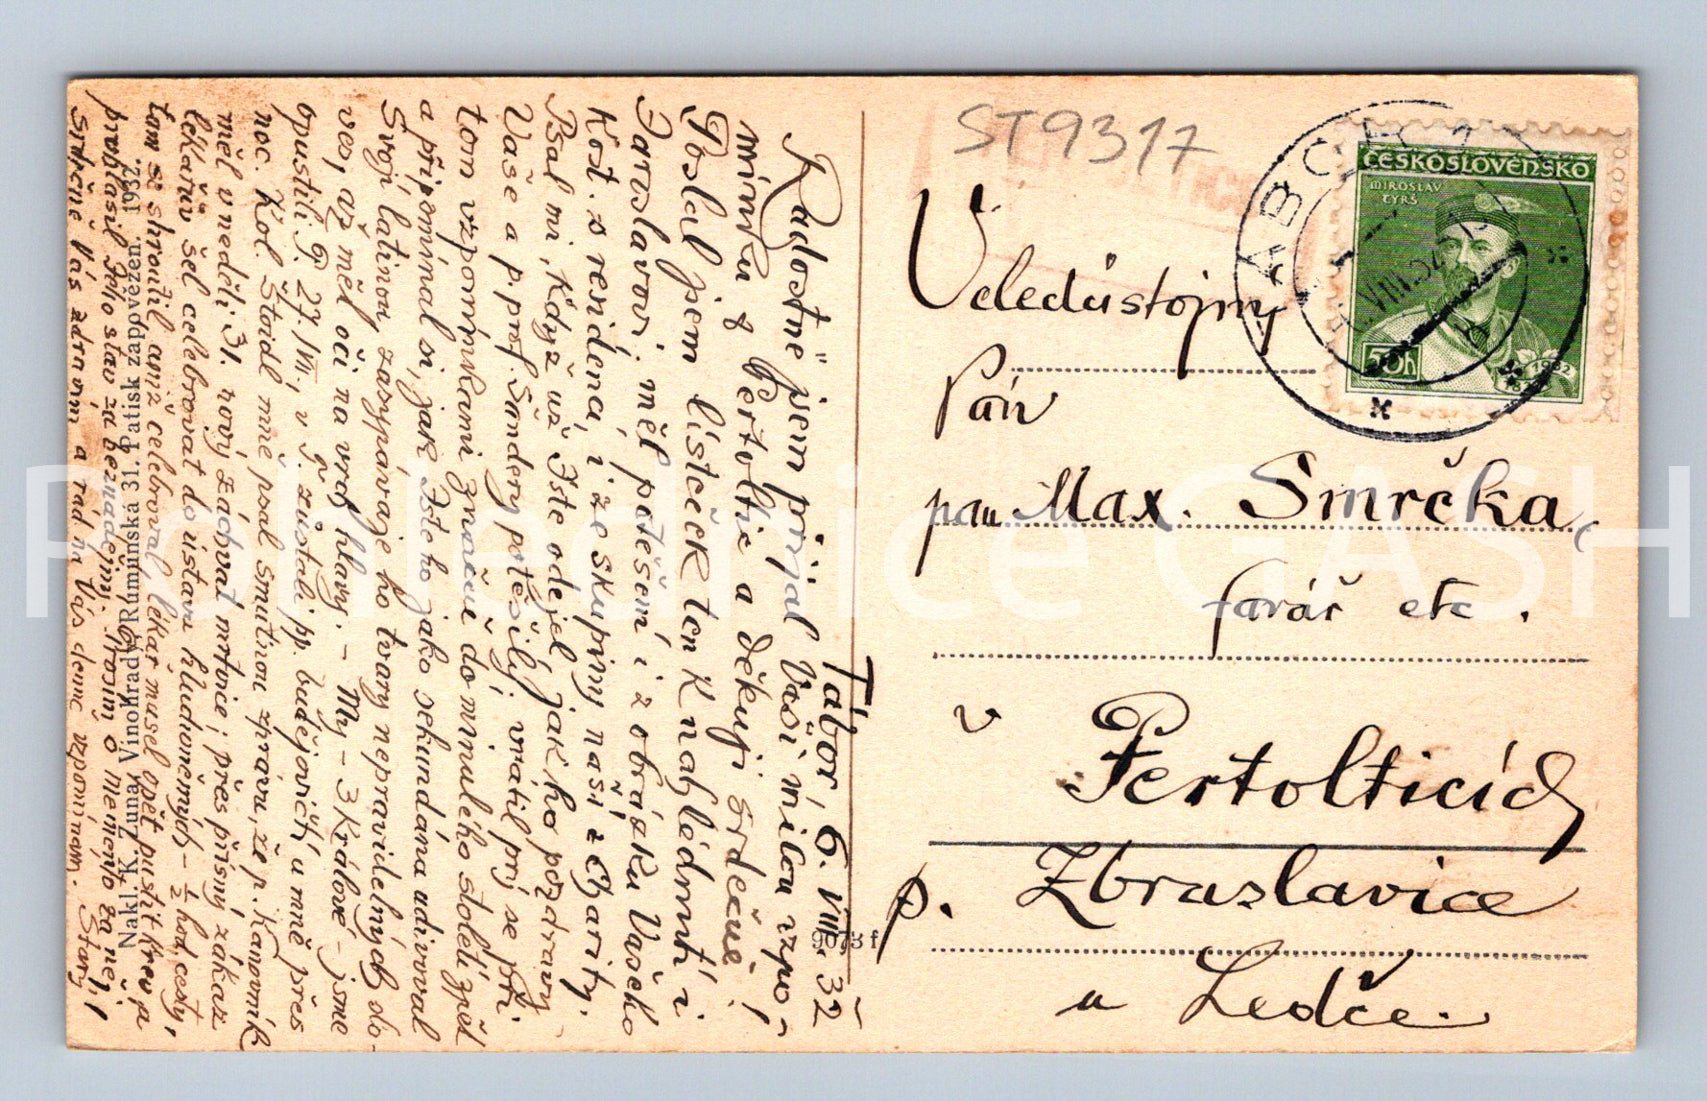 ST 9317
ČESKOSLOVENSKO
MIROSLAV
TYRŠ
50h
1932
TABOR
Veledůstojný
Pán
pan Max. Smrčka,
farář etc.
v Pertolticích
p. Zbraslavice
u Ledče.
Tábor, 6. VIII. 32
Radostně jsem přijal Vaši milou vzpo-
mínku z Pertoltic a děkuji srdečně!
Poslal jsem lísteček ten k nahlédnutí i
Jaroslavovi; měl potěšení i z obrázku Vašeho
kost. s residencí, i ze skupiny naší z Charity.
Psal mi, když už Jste odejel, jak ho pozdravy
Vaše a p. prof. Šimdery potěšily; vrátil prý se při
tom vzpomínkami značně do minulého století zpět
a připomínal si, jak Jste ho jako sekundána udivoval
svojí latinou
ved, až měl oči na vrch hlavy. – My – 3 Králové – jsme
opustili Č. B. 27./VII., v B. zůstali pp. budějovičtí u mně přes
noc. Kol. Štoidl mně psal smutnou zprávu, že p. kanovník
měl v neděli 31. nový záchvat mrtvice; přes přísný zákaz
lékařův šel celebrovat do ústavu hluchoněmých – ½ hod. cesty,
tam se zhroutil, aniž celebroval, lékař musel opět pustit krev a
prohlásil jeho stav za beznadějný. Prosím o memento za něj!
Srdečně Vás zdravím a rád na Vás denně vzpomínám. Starý
Nakl. K. Zuna, Vinohrady, Rumunská 31. Patisk zapovězen. 1932.
9073 f
Pohlednice GASH